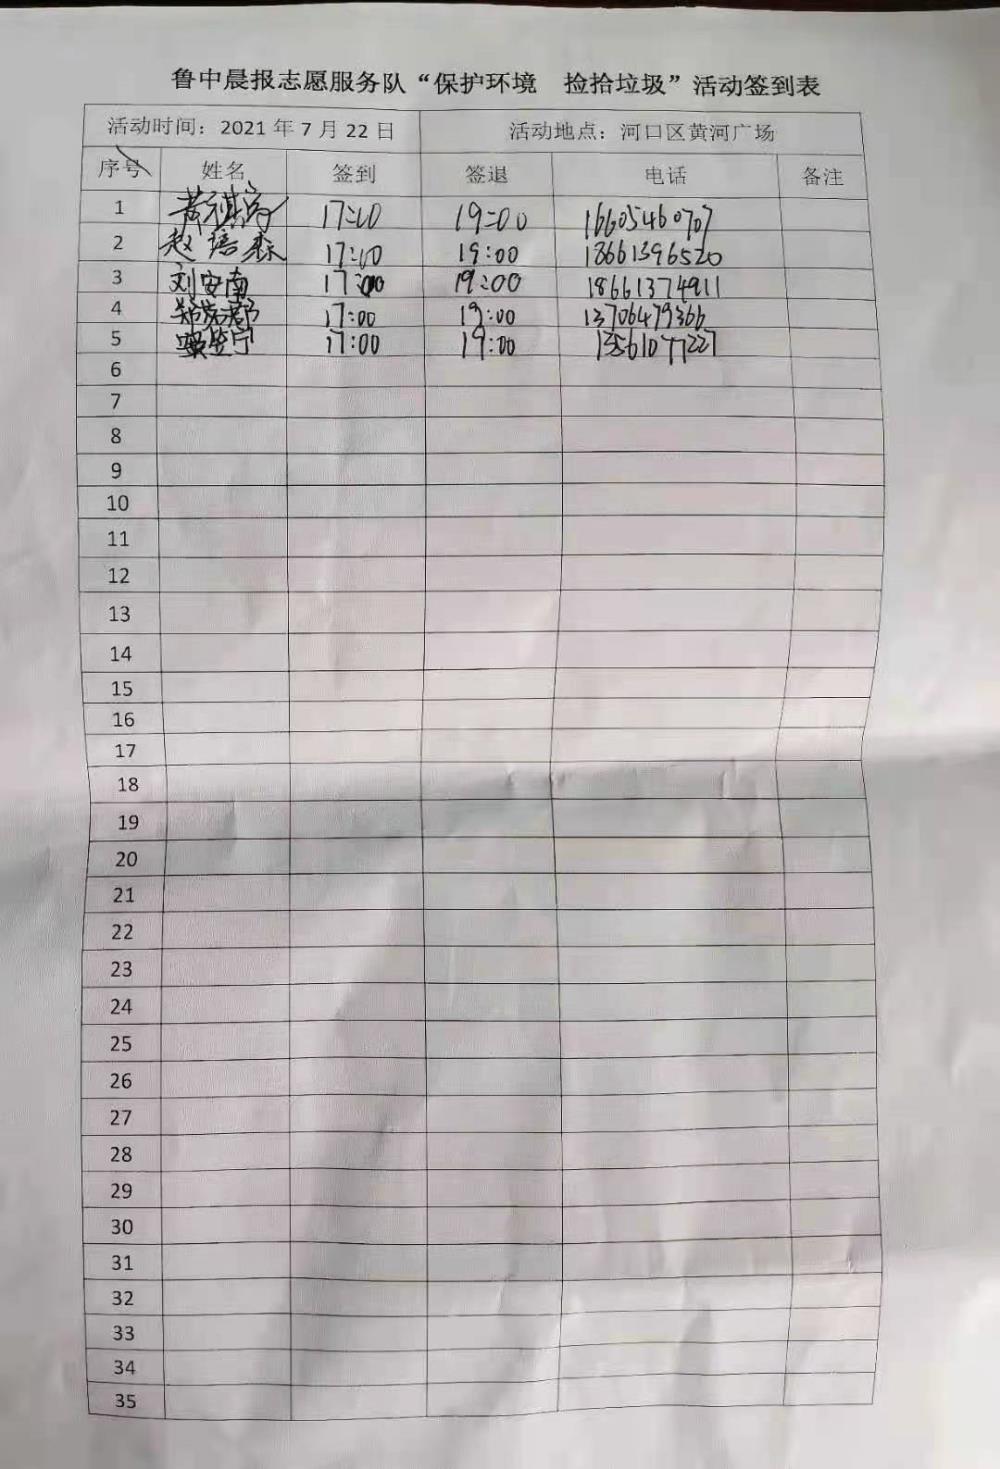 鲁中晨报志愿服务队“保护环境 捡拾垃圾”活动签到表
活动时间：2021年7月22日 活动地点：河口区黄河广场
序号 姓名 签到 签退 电话 备注
1 17:00 19:00 16605460707
2 赵培森 17:00 19:00 18661396520
3 刘安南 17:00 19:00 18661374911
4 17:00 19:00 13706479366
5 17:00 19:00 13561077227
6
7
8
9
10
11
12
13
14
15
16
17
18
19
20
21
22
23
24
25
26
27
28
29
30
31
32
33
34
35